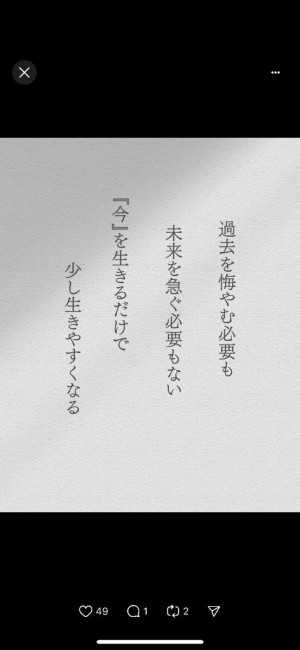 過去を悔やむ必要も
未来を急ぐ必要もない
『今』を生きるだけで
少し生きやすくなる
49
1
2